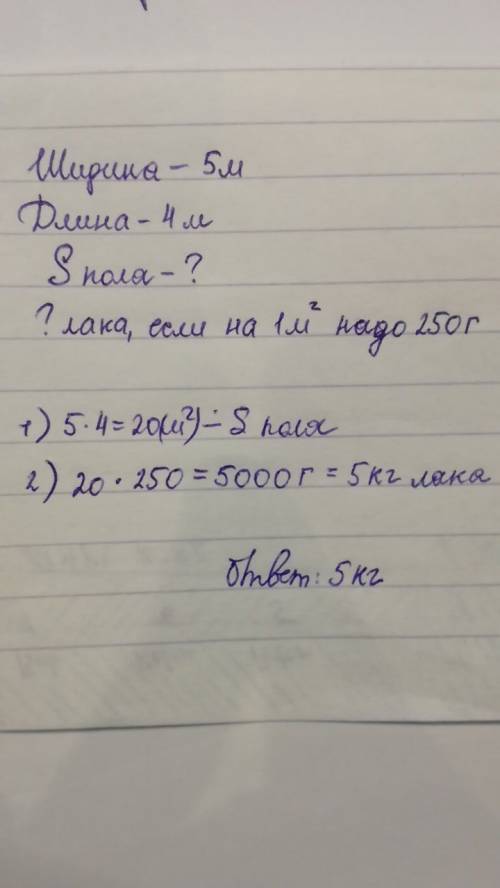 Ширина - 5м
Длина - 4 м
S пола - ?
? лака, если на 1м² надо 250г
1) 5·4=20(м²) - S пола
2) 20·250=5000г=5кг лака
Ответ: 5кг